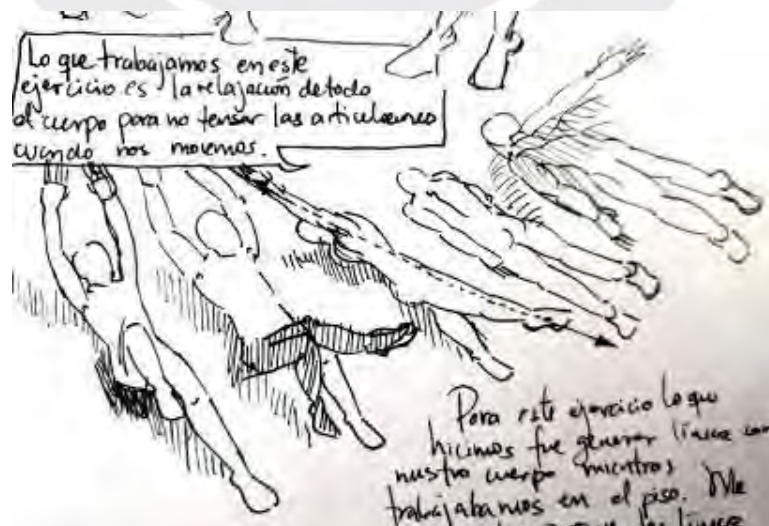 Lo que trabajamos en este
ejercicio es la relajación de todo
el cuerpo para no tensar las articulaciones
cuando nos movemos.
Para este ejercicio lo que
hicimos fue generar líneas con
nuestro cuerpo mientras
trabajabamos en el piso. Me